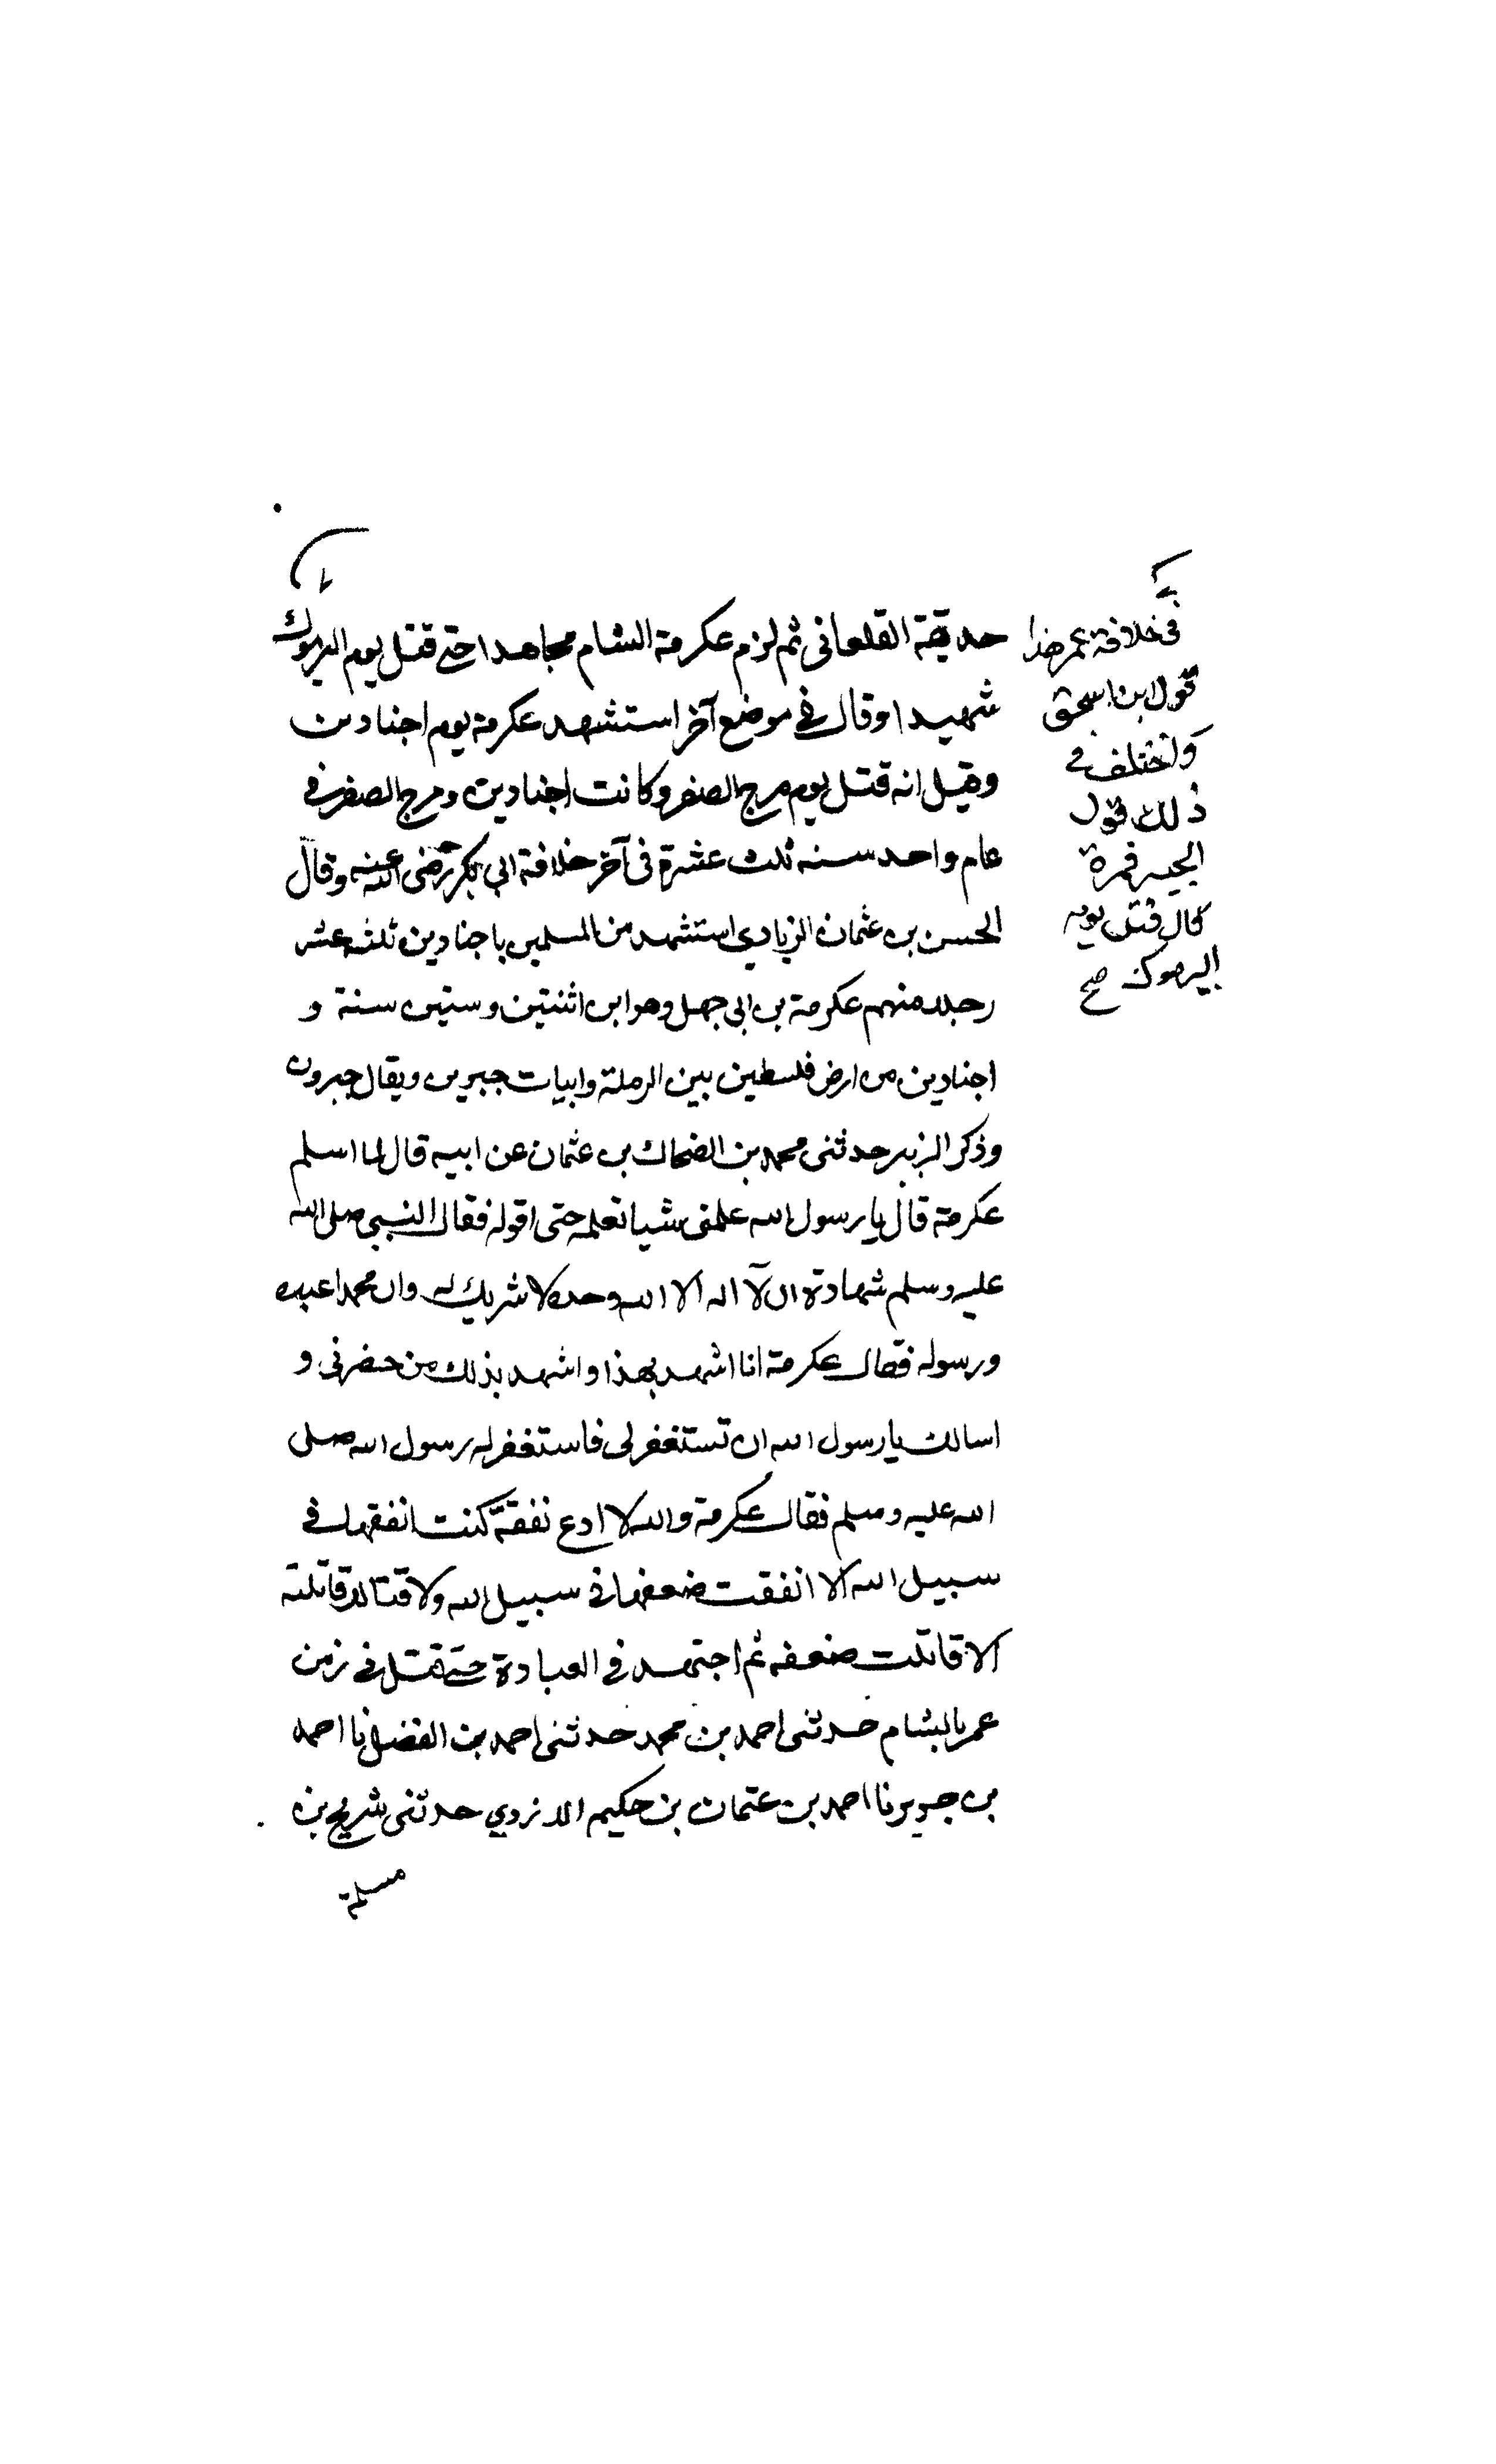 حديقة القلعانى ثم لزم عكرمة الشام مجاهدا حتى قتل يوم اليرموك
شهيدا وقال فى موضع آخر استشهد عكرمة يوم اجنادين
وقيل انه قتل يوم مرج الصفر وكانت اجنادين ومرج الصفر فى
عام واحد سنه ثلث عشرة فى آخر خلافة ابي بكر رضى الله عنه وقال
الحسن بن عثمان الزيادي استشهد من المسلمين باجنادين ثلثه عشر
رجلا منهم عكرمة بن ابى جهل وهو ابن اثنتين وستين سنة و
اجنادين من ارض فلسطين بين الرملة وابيات جبرين ويقال جبرون
وذكر الزبير حدثنى محمد بن الضحاك بن عثمان عن ابيه قال لما اسلم
عكرمة قال يا رسول الله علمنى شيا تعلمه حتى اقوله فقال النبي صلى الله
عليه وسلم شهادة ان لآ اله الا الله وحده لا شريك له وان محمدا عبده
ورسوله فقال عكرمة انا اشهد بهذا واشهد بذلك من حضرنى و
اسالك يا رسول الله ان تستغفر لى فاستغفر له رسول الله صلى
الله عليه وسلم فقال عكرمة والله لا ادع نفقة كنت انفقها فى
سبيل الله الا انفقت ضعفها فى سبيل الله ولا قتالا قاتلته
الا قاتلت ضعفه ثم اجتهد فى العبادة حتى قتل فى زمن
عمر بالشام حدثنى احمد بن محمد حدثنى احمد بن الفضل نا احمد
بن جرير نا احمد بن عثمان بن حكيم الازدي حدثنى شريح بن
مسلمة
فى خلافة عمر هذا
قول ابن اسحق
واختلف فى
ذلك قول
الجميع فمرة
قال قتل يوم
اليرموك صح